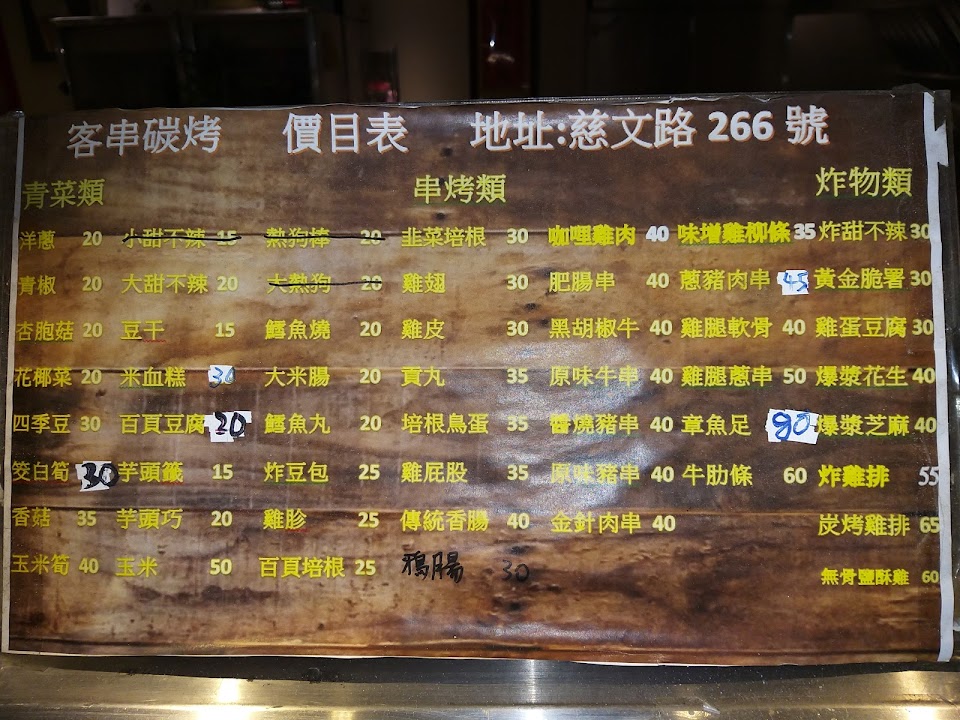 客串碳烤 價目表 地址:慈文路 266 號
青菜類 串烤類 炸物類
洋蔥 20 小甜不辣 15 熱狗棒 20 韭菜培根 30 咖哩雞肉 40 味增雞柳條 35 炸甜不辣 30
青椒 20 大甜不辣 20 大熱狗 20 雞翅 30 肥腸串 40 蔥豬肉串 45 黃金脆署 30
杏胞菇 20 豆干 15 鱈魚燒 20 雞皮 30 黑胡椒牛 40 雞腿軟骨 40 雞蛋豆腐 30
花椰菜 20 米血糕 30 大米腸 20 貢丸 35 原味牛串 40 雞腿蔥串 50 爆漿花生 40
四季豆 30 百頁豆腐 20 鱈魚丸 20 培根鳥蛋 35 醬燒豬串 40 章魚足 90 爆漿芝麻 40
筊白筍 30 芋頭籤 15 炸豆包 25 雞屁股 35 原味豬串 40 牛肋條 60 炸雞排 55
香菇 35 芋頭巧 20 雞胗 25 傳統香腸 40 金針肉串 40 炭烤雞排 65
玉米筍 40 玉米 50 百頁培根 25 鴉腸 30 無骨鹽酥雞 60